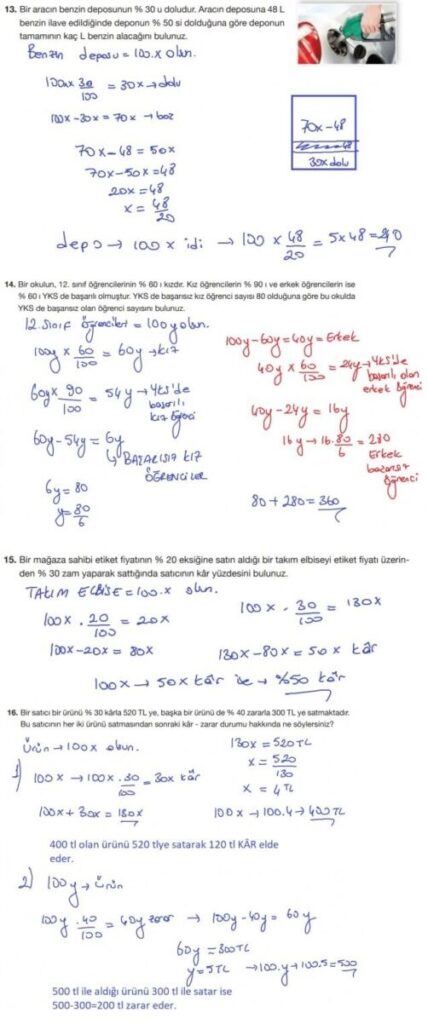 13. Bir aracın benzin deposunun % 30 u doludur. Aracın deposuna 48 L
benzin ilave edildiğinde deponun % 50 si dolduğuna göre deponun
tamamının kaç L benzin alacağını bulunuz.
Benzin deposu = 100.x olsun.
100x x 30/100 = 30x → dolu
100x - 30x = 70x → boş
70x - 48 = 50x
70x - 50x = 48
20x = 48
x = 48/20
70x - 48
48
30x dolu
depo → 100x idi → 100 x 48/20 = 5x48 = 240
14. Bir okulun, 12. sınıf öğrencilerinin % 60 ı kızdır. Kız öğrencilerin % 90 ı ve erkek öğrencilerin ise
% 60 ı YKS de başarılı olmuştur. YKS de başarısız kız öğrenci sayısı 80 olduğuna göre bu okulda
YKS de başarısız olan öğrenci sayısını bulunuz.
12. Sınıf öğrencileri = 100y olsun.
100y x 60/100 = 60y → kız
60y x 90/100 = 54y → YKS'de
başarılı
kız öğrenci
60y - 54y = 6y
↳ BAŞARISIZ KIZ
ÖĞRENCİLER
6y = 80
y = 80/6
100y - 60y = 40y = Erkek
40y x 60/100 = 24y → YKS'de
başarılı olan
erkek öğrenci
40y - 24y = 16y
16y → 16.80/6 = 280
Erkek
başarısız
öğrenci
80 + 280 = 360
15. Bir mağaza sahibi etiket fiyatının % 20 eksiğine satın aldığı bir takım elbiseyi etiket fiyatı üzerin-
den % 30 zam yaparak sattığında satıcının kâr yüzdesini bulunuz.
TAKIM ELBİSE = 100.x olsun.
100x . 20/100 = 20x
100x - 20x = 80x
100x . 30/100 = 130x
130x - 80x = 50x kâr
100x → 50x kâr ise → %50 kâr
16. Bir satıcı bir ürünü % 30 kârla 520 TL ye, başka bir ürünü de % 40 zararla 300 TL ye satmaktadır.
Bu satıcının her iki ürünü satmasından sonraki kâr - zarar durumu hakkında ne söylersiniz?
Ürün → 100x olsun.
1) 100x → 100x . 30/100 = 30x kâr
100x + 30x = 130x
130x = 520 TL
x = 520/130
x = 4 TL
100x → 100.4 → 400 TL
400 tl olan ürünü 520 tlye satarak 120 tl KÂR elde
eder.
2) 100y → ürün
100y . 40/100 = 40y zarar → 100y - 40y = 60y
60y = 300 TL
y = 5 TL → 100.y → 100.5 = 500
500 tl ile aldığı ürünü 300 tl ile satar ise
500-300=200 tl zarar eder.